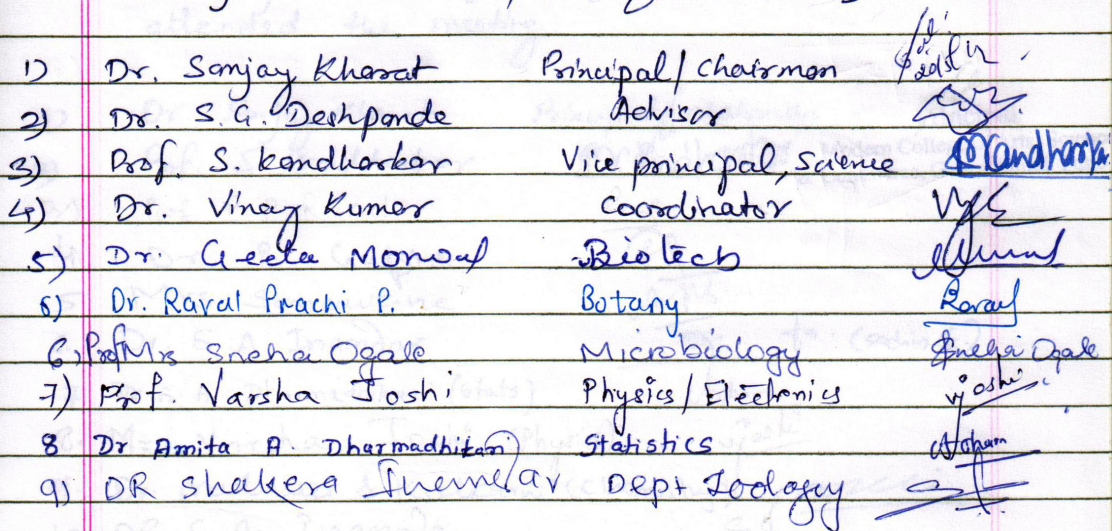 1) Dr. Sanjay Kharat Principal / Chairman
2) Dr. S. G. Deshpande Advisor
3) Prof. S. Kandharkar Vice principal, Science Kandharkar
4) Dr. Vinay Kumar Coordinator
5) Dr. Geeta Biotech
6) Dr. Raval Prachi P. Botany Raval
6) Prof Mrs Sneha Ogale Microbiology Sneha Ogale
7) Prof. Varsha Joshi Physics / Electronics vjoshi
8 Dr Amita A. Dharmadhikari Statistics
9) DR Shakera Inamdar Dept Zoology